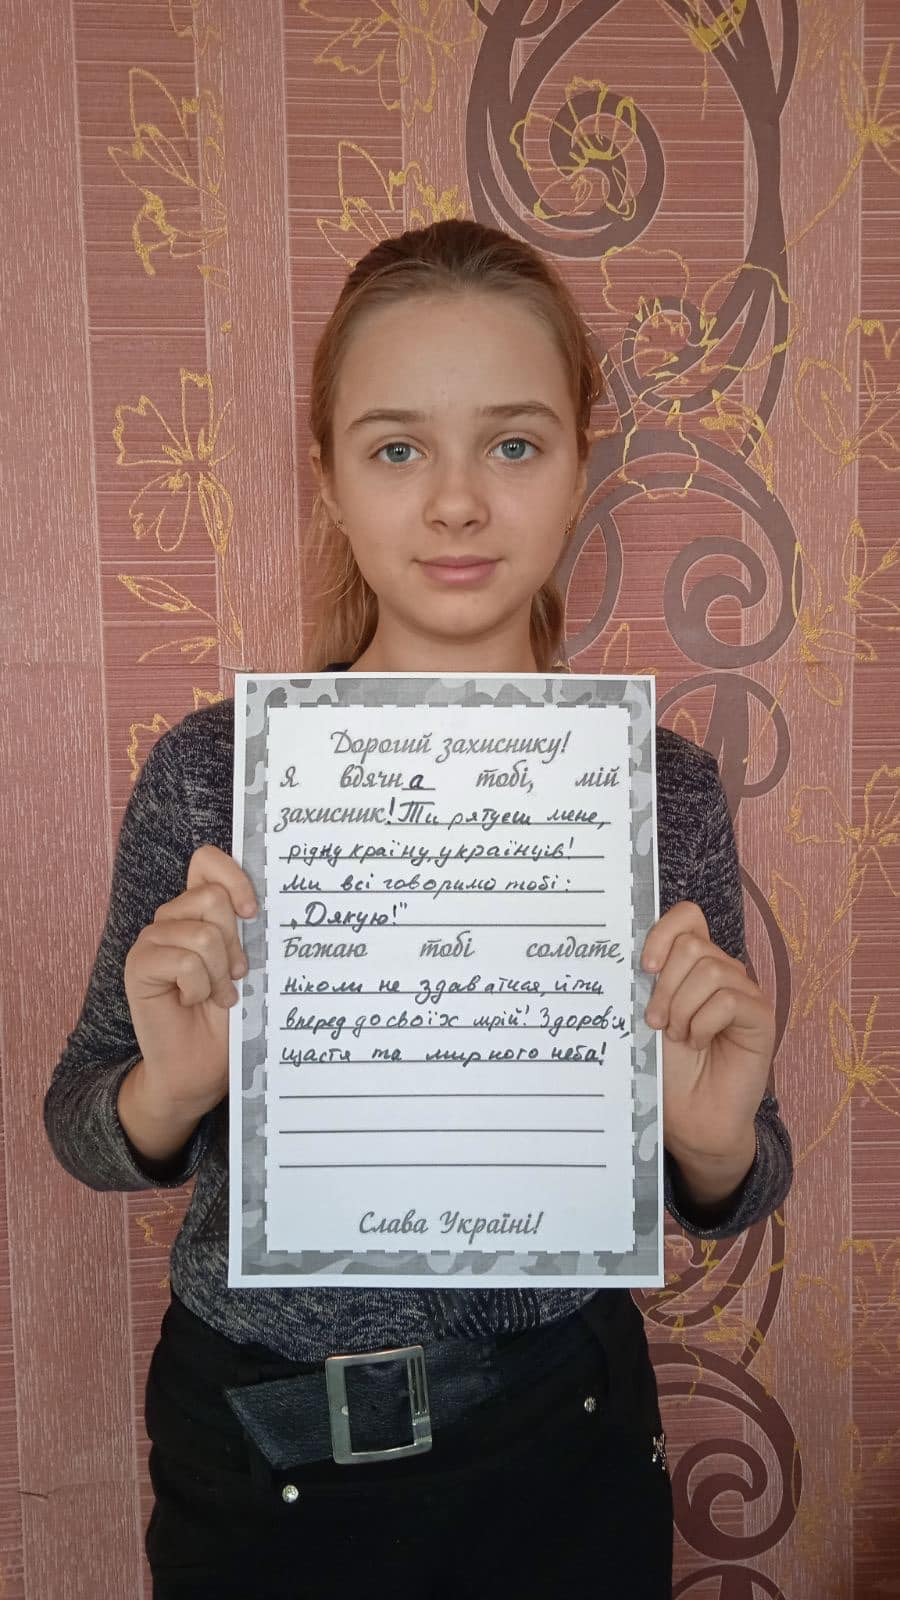 Дорогий захиснику!
Я вдячна тобі, мій
захисник! Ти рятуєш мене,
рідну країну, українців!
Ми всі говоримо тобі:
„Дякую!"
Бажаю тобі солдате,
ніколи не здаватися, йти
вперед до своїх мрій! Здоров'я,
щастя та мирного неба!
Слава Україні!